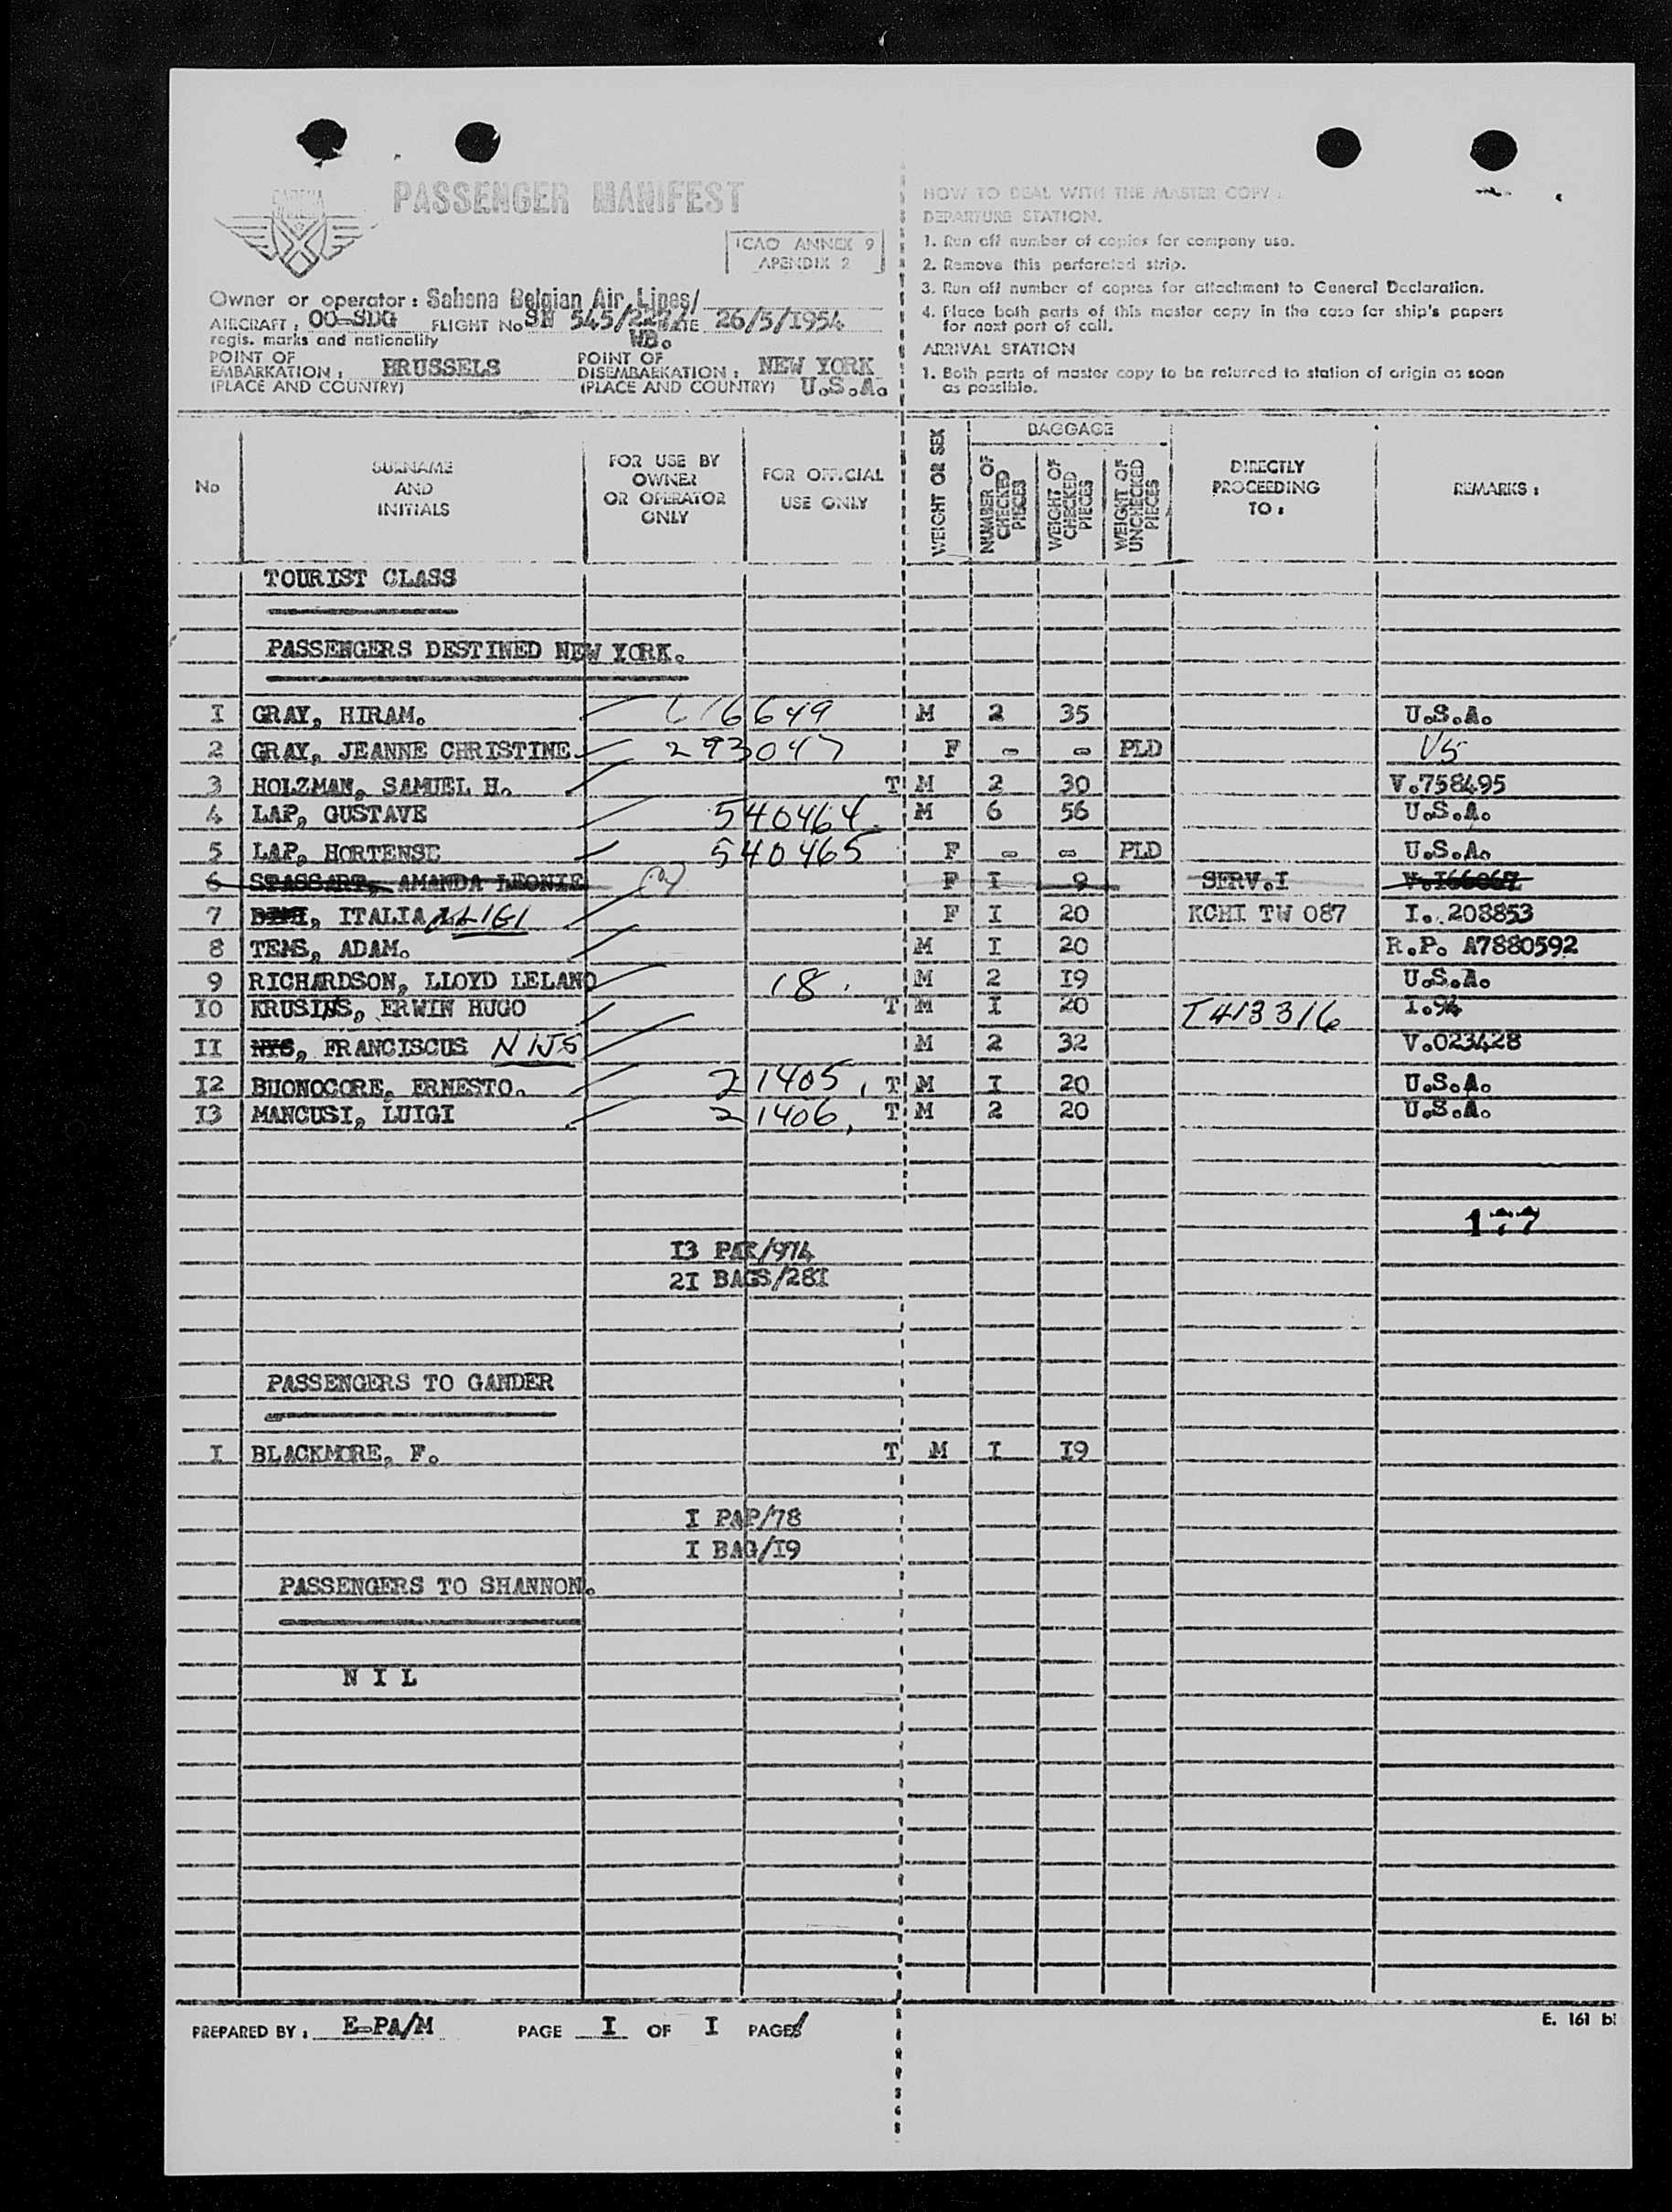 SABENA
PASSENGER MANIFEST
ICAO ANNEX 9
APENDIX 2
Owner or operator : Sabena Belgian Air Lines/
AIRCRAFT : OO-SDG FLIGHT No SN 545/227/ DATE 26/5/I954
regis. marks and nationality WB.
POINT OF EMBARKATION : BRUSSELS POINT OF DISEMBARKATION : NEW YORK
(PLACE AND COUNTRY) (PLACE AND COUNTRY) U.S.A.
HOW TO DEAL WITH THE MASTER COPY :
DEPARTURE STATION.
1. Run off number of copies for company use.
2. Remove this perforated strip.
3. Run off number of copies for attachment to General Declaration.
4. Place both parts of this master copy in the case for ship's papers
for next port of call.
ARRIVAL STATION
1. Both parts of master copy to be returned to station of origin as soon
as possible.
No
SURNAME
AND
INITIALS
FOR USE BY
OWNER
OR OPERATOR
ONLY
FOR OFFICIAL
USE ONLY
WEIGHT OR SEX
BAGGAGE
NUMBER OF
CHECKED
PIECES
WEIGHT OF
CHECKED
PIECES
WEIGHT OF
UNCHECKED
PIECES
DIRECTLY
PROCEEDING
TO :
REMARKS :
TOURIST CLASS
PASSENGERS DESTINED NEW YORK.
I GRAY, HIRAM. 616649 M 2 35 U.S.A.
2 GRAY, JEANNE CHRISTINE 293047 F - - PLD US
3 HOLZMAN, SAMUEL H. T M 2 30 V.758495
4 LAP, GUSTAVE 540464 M 6 56 U.S.A.
5 LAP, HORTENSE 540465 F - - PLD U.S.A.
6 STASSART, AMANDA LEONIE F I 9 SERV.I V.I66067
7 , ITALIA F I 20 KCHI TW 087 I. 208853
8 TEMS, ADAM. M I 20 R.P. A7880592
9 RICHARDSON, LLOYD LELAND 18. M 2 I9 U.S.A.
I0 KRUSINS, ERWIN HUGO T M I 20 T413316 I.94
II NYS, FRANCISCUS NIJS M 2 32 V.023428
I2 BUONOCORE, ERNESTO. 21405, T M I 20 U.S.A.
I3 MANCUSI, LUIGI 21406, T M 2 20 U.S.A.
177
I3 PAX/974
2I BAGS/28I
PASSENGERS TO GANDER
I BLACKMORE, F. T M I I9
I PAP/78
I BAG/I9
PASSENGERS TO SHANNON.
N I L
PREPARED BY : E-PA/M PAGE I OF I PAGES
E. 161 b